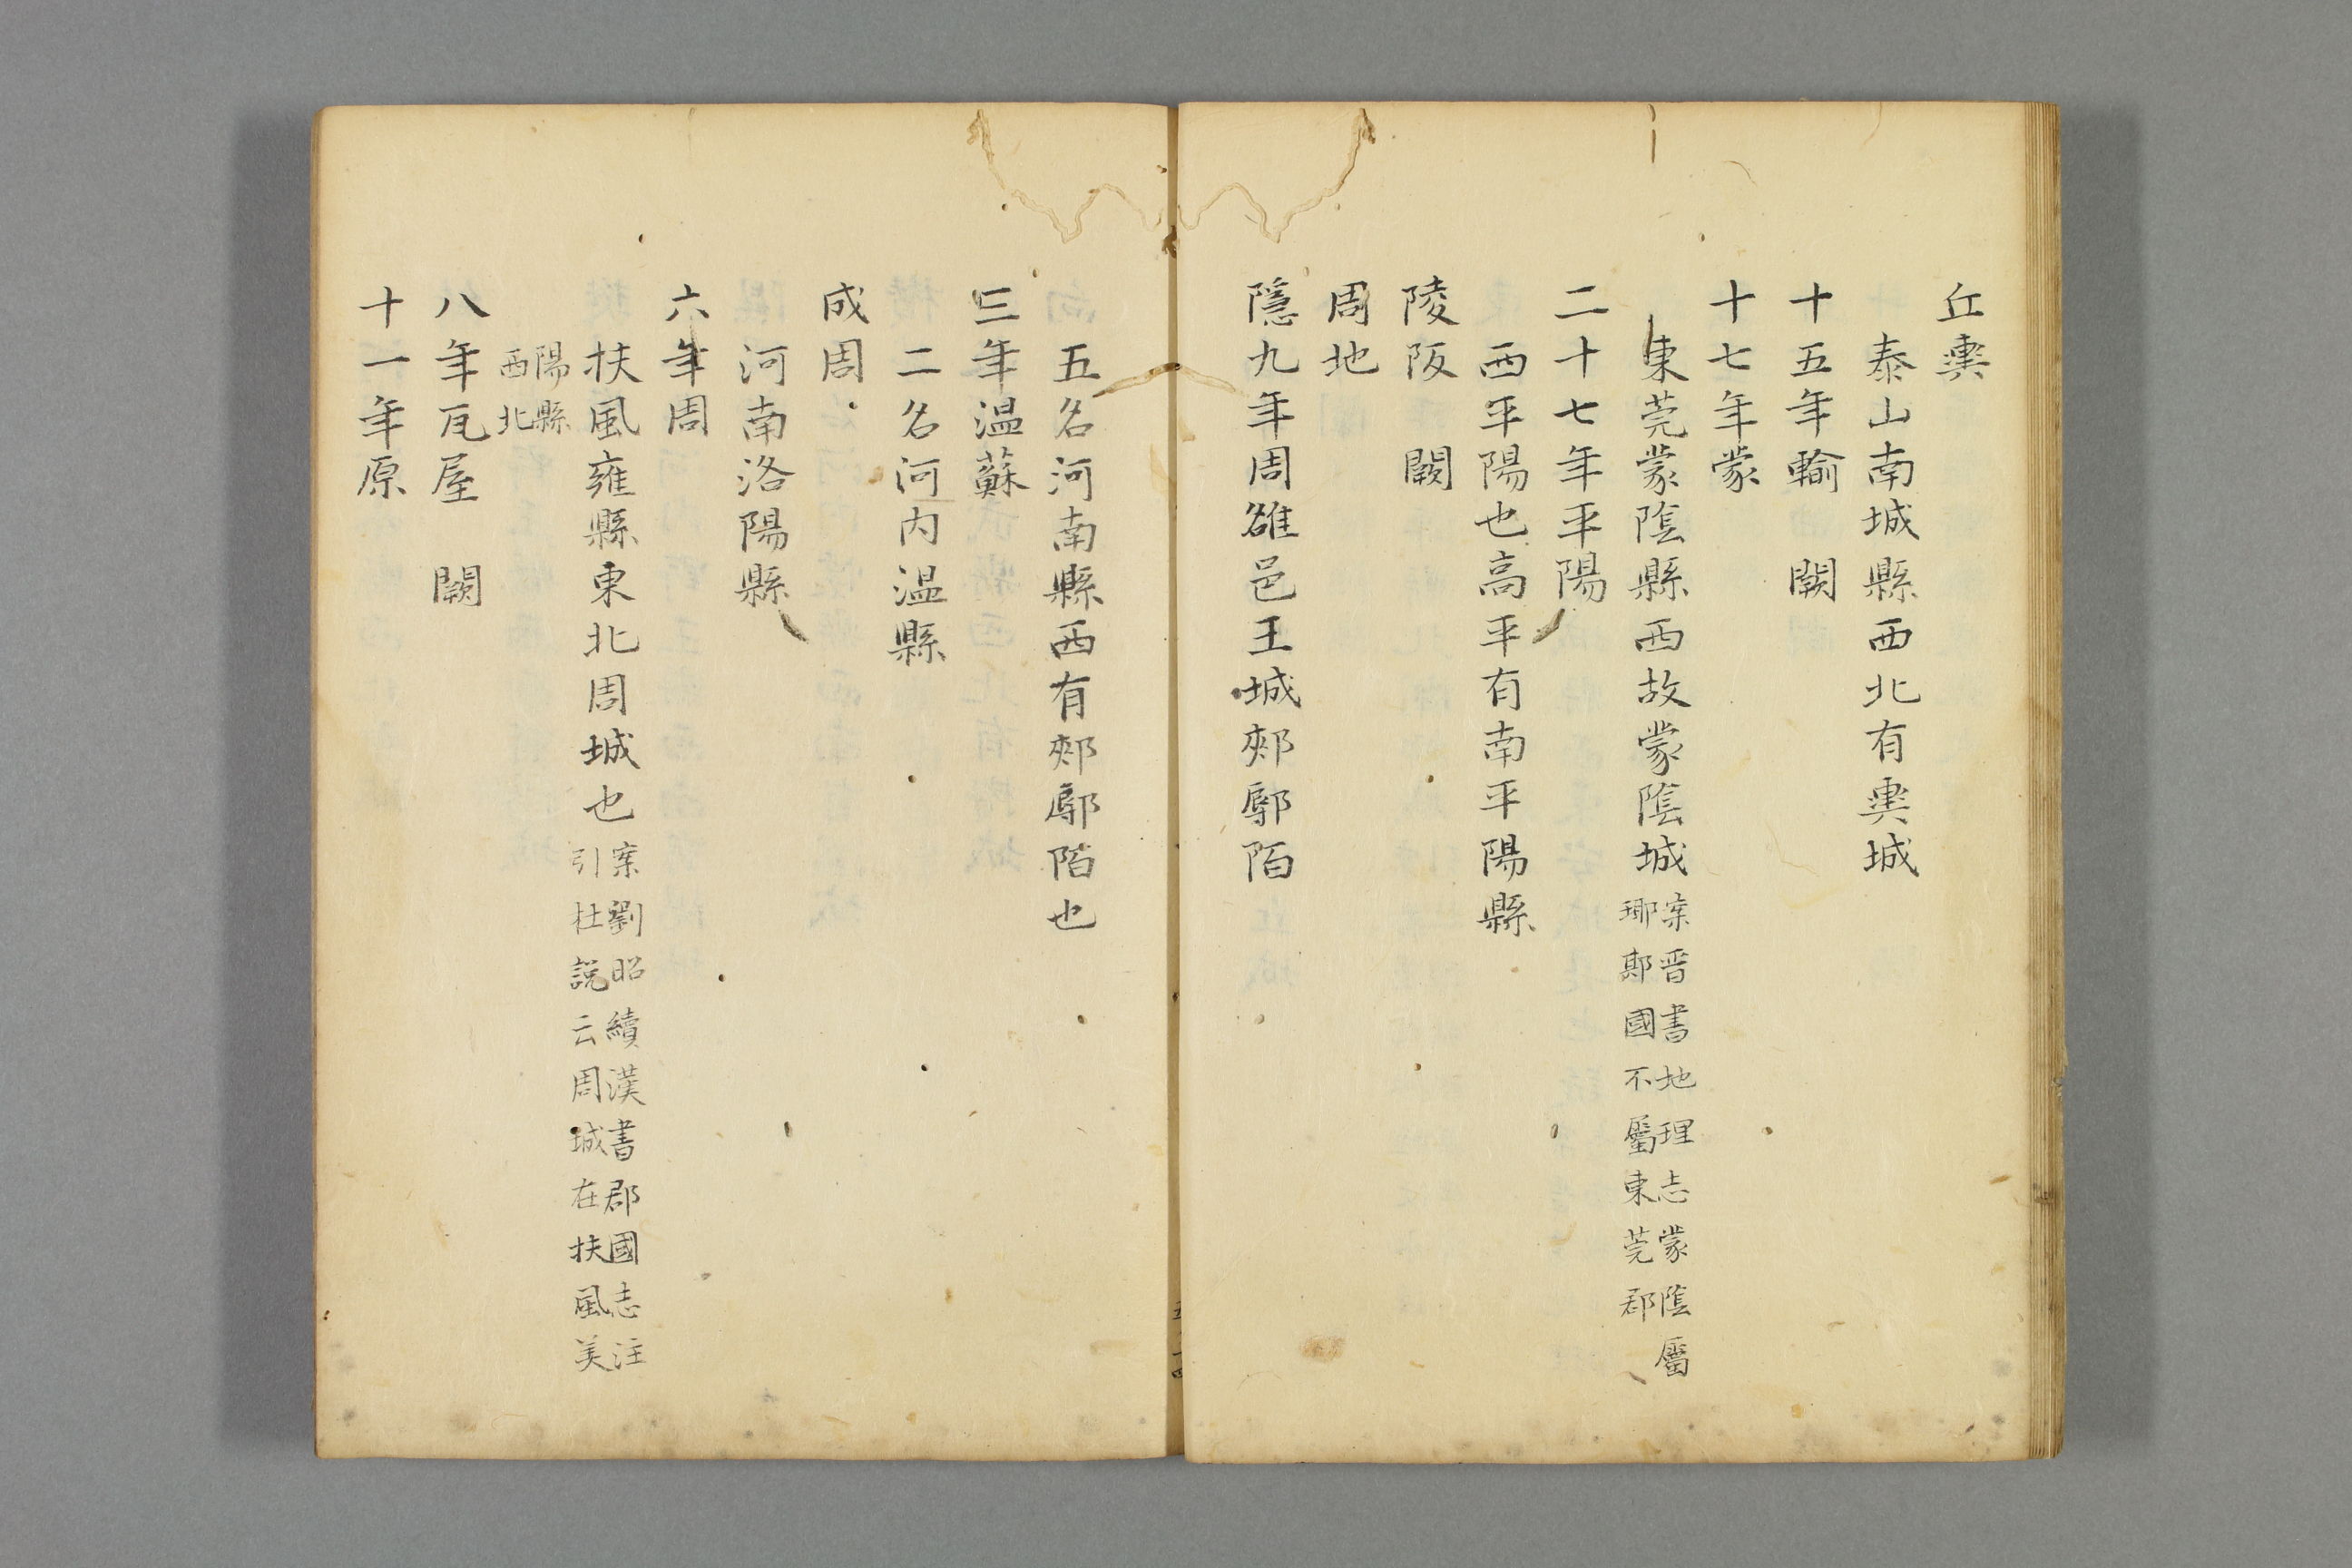 丘輿
泰山南城縣西北有輿城
十五年輸　闕
十七年蒙
東莞蒙陰縣西故蒙陰城案晋書地理志蒙陰屬
瑯鄆國不屬東莞郡
二十七年平陽
西平陽也高平有南平陽縣
陵阪　闕
周地
隱九年周雒邑王城郟鄏陌
五名河南縣西有郟鄏陌也
三年温蘇
二名河内温縣
成周
河南洛陽縣
六年周
扶風雍縣東北周城也案劉昭續漢書郡國志注
引杜說云周城在扶風美
陽縣
西北
八年瓦屋　闕
十一年原